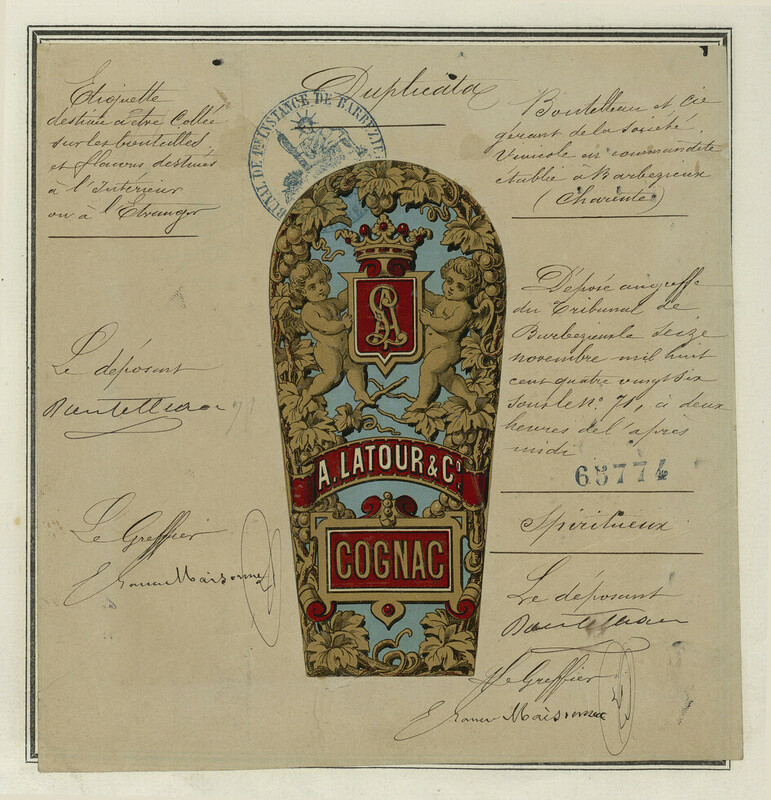 Duplicata
Etiquette
destinée à être Collée
sur les bouteilles
et flacons destinés
à l'Intérieur
ou à l'Etranger
Le déposant
Boutelleau
71
Le Greffier
Maisonneuve
TRIBUNAL DE 1ERE INSTANCE DE BARBEZIEUX
LA
A. LATOUR & Co.
COGNAC
Boutelleau et Cie
gérant de la Société
Vinicole en commandite
établie à Barbezieux
(Charente)
Déposé au greffe
du Tribunal de
Barbezieux le seize
novembre mil huit
cent quatre vingt six
sous le No. 71, à deux
heures de l'après
midi
65774
Spiritueux
Le déposant
Boutelleau
Le Greffier
Maisonneuve